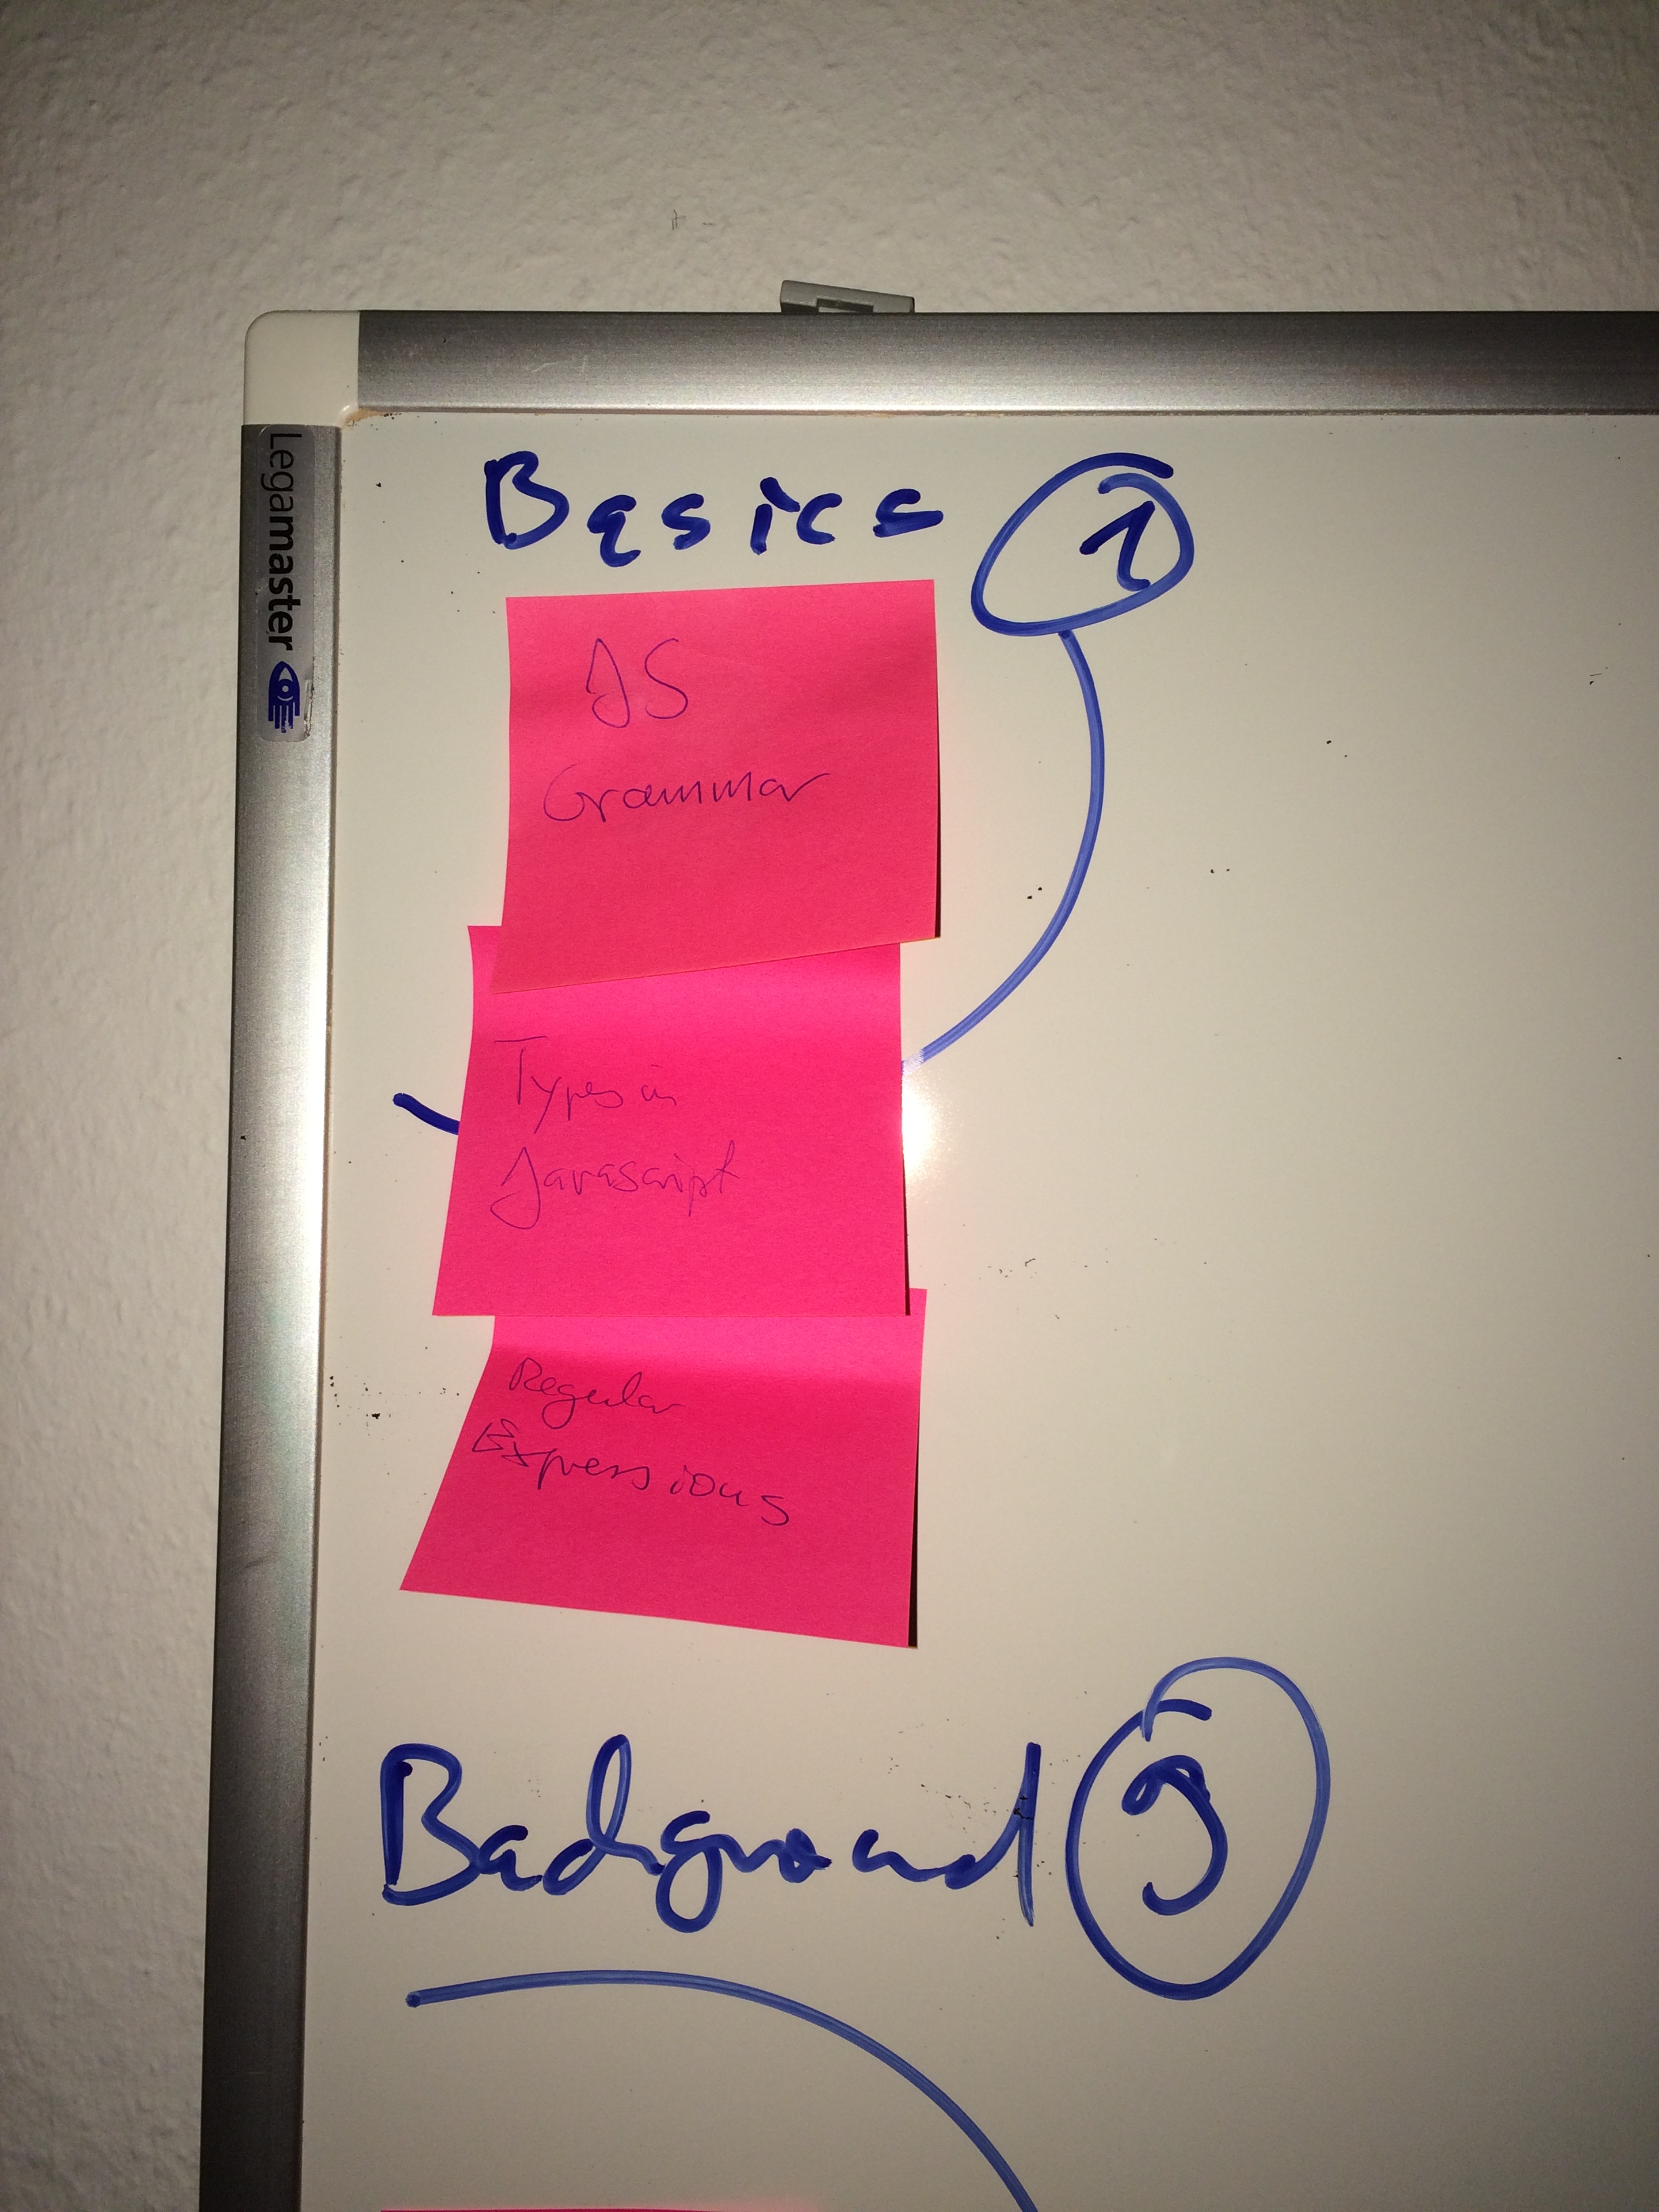 Legamaster
Basics 1
JS
Grammar
Types in
Javascript
Regular
Expressions
Background 9